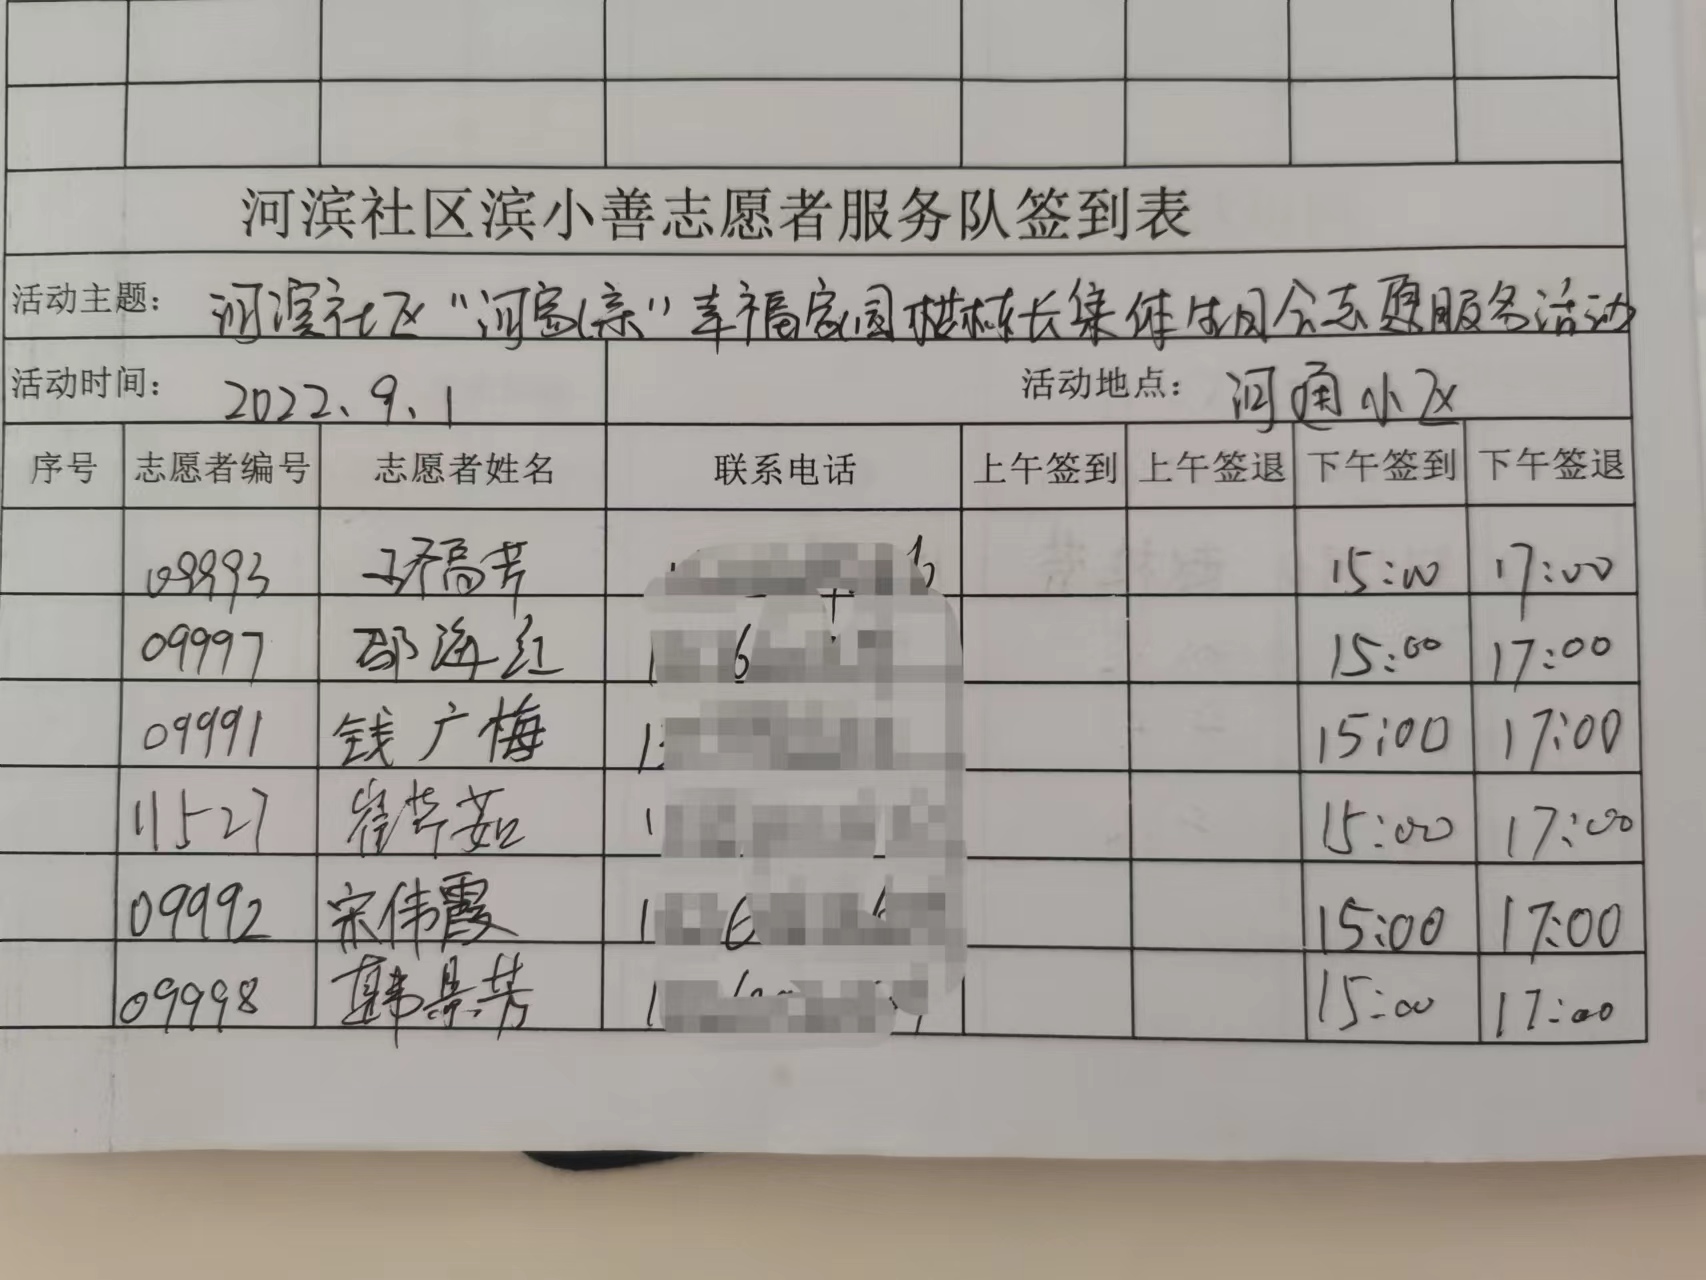 河滨社区滨小善志愿者服务队签到表
活动主题： 河滨社区“河家亲”幸福家园楼栋长集体生日会志愿服务活动
活动时间： 2022.9.1 活动地点： 河通小区
序号 志愿者编号 志愿者姓名 联系电话 上午签到 上午签退 下午签到 下午签退
09993 高芳 15:00 17:00
09997 邵海红 1 6 15:00 17:00
09991 钱广梅 1 15:00 17:00
11527 崔苹茹 1 15:00 17:00
09992 宋伟霞 1 6 15:00 17:00
09998 韩景芳 1 15:00 17:00